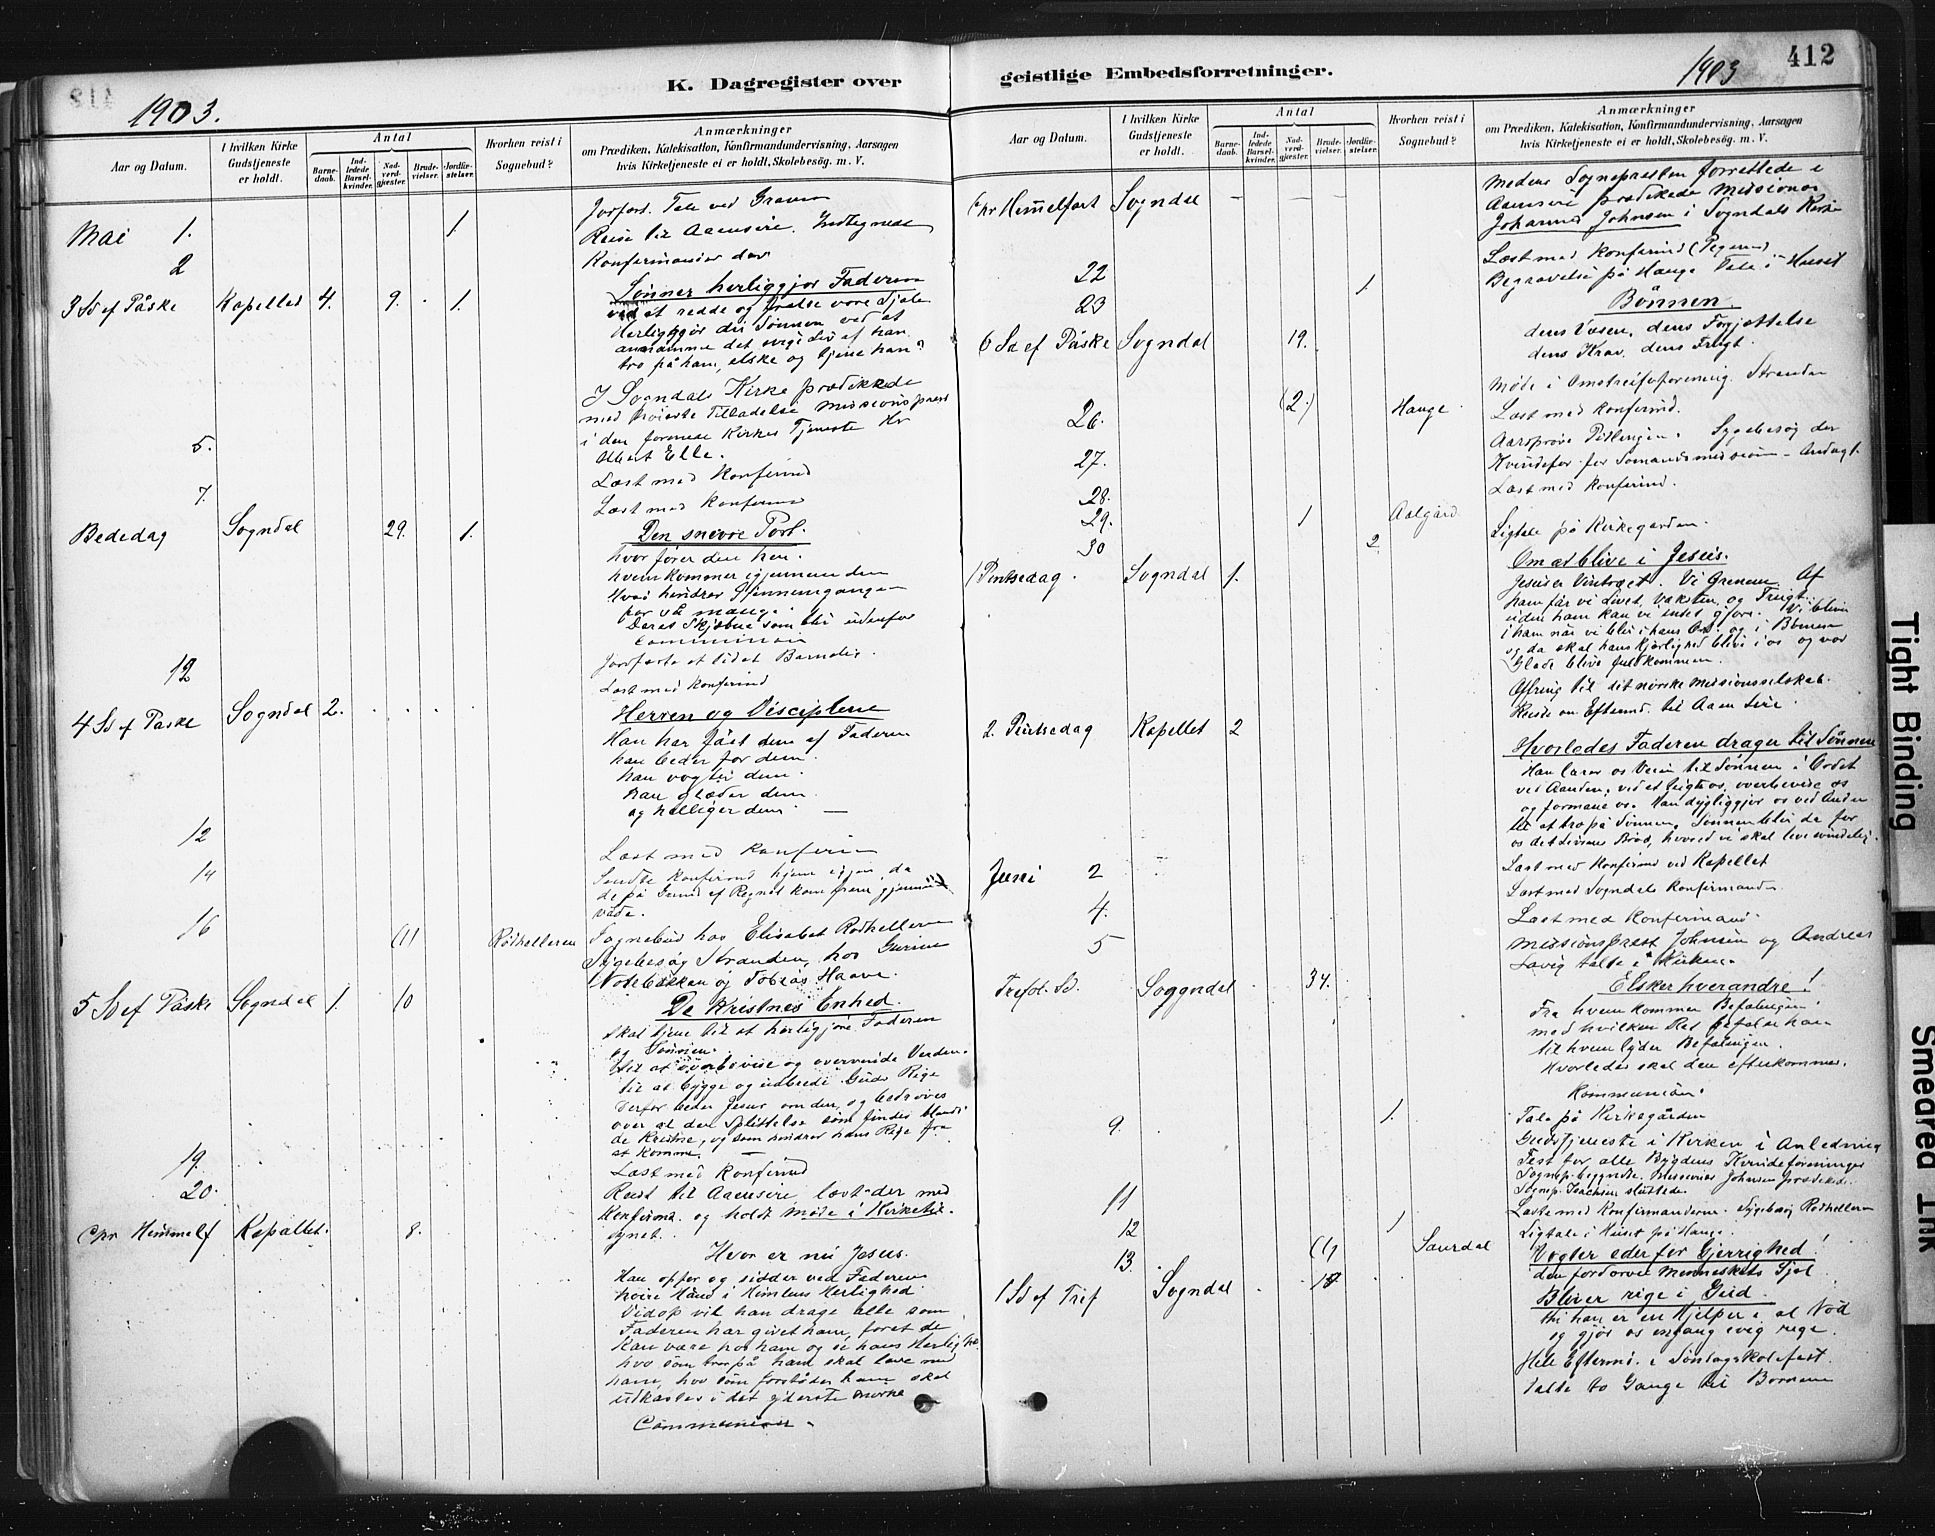 K. Dagregister over
1903.
Aar og Datum.
I hvilken Kirke Gudstjeneste er holdt.
Antal
Barnedaab.
Indledede Barselkvinder.
Nadverdgjester.
Brudevielser.
Jordfæstelser.
Hvorhen reist i Sognebud?
Anmærkninger
om Prædiken, Katekisation, Konfirmandundervisning, Aarsagen
hvis Kirketjeneste ei er holdt, Skolebesøg. m. V.
Mai 1. 1
Jorfæst. Tale ved Graven
2
Reise til Aaensire. Indtegnede
Konfirmanter der
3 Sd ef Påske Kapellet 4. 9. 1.
Sønner herliggjør Faderen
ved at redde og frelse vore Sjele
Herliggjør du Sønnen ved at
annamme det evige Liv af ham
tro på ham, elske og tjene ham?
I Sogndals Kirke prædikede
med Tilladelse Missionsprest
i den Kirkes Tjeneste Hr
Albert Elle.
5.
Læst med Konfirmd
7.
Læst med Konfirm
Bededag Sogndal 29. 1.
Den snevre Port.
hvor fører den hen.
hvem kommer igjennem den
Hvad hindrer Gjennemgangen
for så mange.
Deres Skjæbne som blir udenfor
Communion
Jordfæste et lidet Barnelig.
12
Læst med Konfirmd
4 Sd ef Påske Sogndal 2.
Herren og Disciplene
Han har fået dem af Faderen
han beder for dem.
han vogter dem.
han glæder dem
og helliger dem. —
12
Læst med Konfirm
14
Sendte Konfirmd hjem igjen, da
de på Grund af Regnet kom frem gjennem
våde.
16 (1) Rødhelleren
Sognebud hos Elisabet Rødhelleren
Sygebesøg Stranden, hos Gurine
Nodebakken og Tobias Haave.
5 Sd ef Påske Sogndal 1. 10
De Kristnes Enhed.
skal tjene til at herliggjøre Faderen
og Sønnen.
til at overbevise og overvinde Verden.
til at bygge og udbrede Guds Rige
Derfor beder Jesus om den, og bedrøves
over al den Splittelse som findes blandt
de Kristne, og som hindrer hans Rige fra
at komme. —
19.
Læst med Konfirmd
20.
Reist til Aaensire, læst der med
Konfirmd. og holdt Møde i Kirketil-
synet.
Chr Himmelf Kapellet. 8.
Hvor er nu Jesus.
Han opfor og sidder ved Faderens
høire Hånd i Himlens Herlighed
Vidop vil han drage alle som
Faderen har givet ham, foret de
kan være hos ham og se hans Herlighed
hvo som tror på ham skal leve med
ham, hvo som forståder ham skal
udkastes i det yderste Mørke
Communion.
geistlige Embedsforretninger.
1903
412
Aar og Datum.
I hvilken Kirke Gudstjeneste er holdt.
Antal
Barnedaab.
Indledede Barselkvinder.
Nadverdgjester.
Brudevielser.
Jordfæstelser.
Hvorhen reist i Sognebud?
Anmærkninger
om Prædiken, Katekisation, Konfirmandundervisning, Aarsagen
hvis Kirketjeneste ei er holdt, Skolebesøg. m. V.
Chr Himmelfart Sogndal — — —
Medens Sognepresten forrettede i
Aaensire prædikede Missionær
Johannes Johnsen i Sogndals Kirke
22
Læst med Konfirmd (Pigerne)
23 1
Begravelse på Hauge Tale i Huset
6 Sd ef Påske Sogndal 19.
Bønnen
dens Væsen, dens Forjættelse
dens Krav, dens Frugt.
Møde i Stranden
26. (2.) Hauge.
Læst med Konfirmd.
27.
Aarsprøve Sygebesøg der
Kvindefor for Sømandsmission - Andagt.
28.
Læst med Konfirmd.
29. 1 Aalgård
30 2
Ligtale på Kirkegården.
1 Pintsedag. Sogndal 1.
Om at blive i Jesus.
Jesus er Vintræet. Vi Grenene. Af
ham får vi Livet, Væksten, og Frugt.
uden ham kan vi intet gjøre. Vi blive
i ham når vi blir i hans Ord og i Bønnen
og da skal hans Kjærlighed blive i os og vor
Glæde blive fuldkommen.
Offring til det norske Missionsselskab.
Reiste om Eftermd. til Aaen Sire.
2. Pintsedag Kapellet 2
Hvorledes Faderen drager til Sønnen
Han lærer os Veien til Sønnen i Ordet
ved Aanden, ved at os, overbevise os
og formane os. Han dygtiggjør os ved Anden
til at tro på Sønnen. Sønnen blir da for
os det Livsens Brød, hvorved vi skal leve evindelig.
Juni 2
Læst med Konfirmd ved Kapellet
4.
Læst med Sogndals Konfirmander
5
Læst med Konfirmand.
Missionsprest Johnsen og Andreas
Lavig talte i Kirken.
Trefol. Sd. Soggndal 34.
Elsker hverandre!
Fra hvem kommer Befalingen
med hvilken Ret befaler han
til hvem lyder Befalingen.
Hvorledes skal den efterkommes.
Kommunion.
9. 1.
Tale på Kirkegården
Gudstjeneste i Kirken i Anledning
Fest for alle Bygdens Kvindeforeninger
Sognep. begyndte, Missionær Johnsen prædikede.
Sognep. Joachim sluttede.
11
Læste med Konfirmanderne. Sygebesøg Rødhelleren
12 1
Ligtale i Huset på Hauge.
13. (1) Saurdal
1 Sd ef Tref Sogndal 18
Vogter eder for Gjerrighed!
den fordærver Menneskets Sjæl
Bliver rige i Gud.
thi han er en Hjelper i al Nød
og gjør os engang evig rige.
Hele Efterm. i Søndagskolefest.
Talte to Gange til Børnene
Tight Binding
Smeared Ink